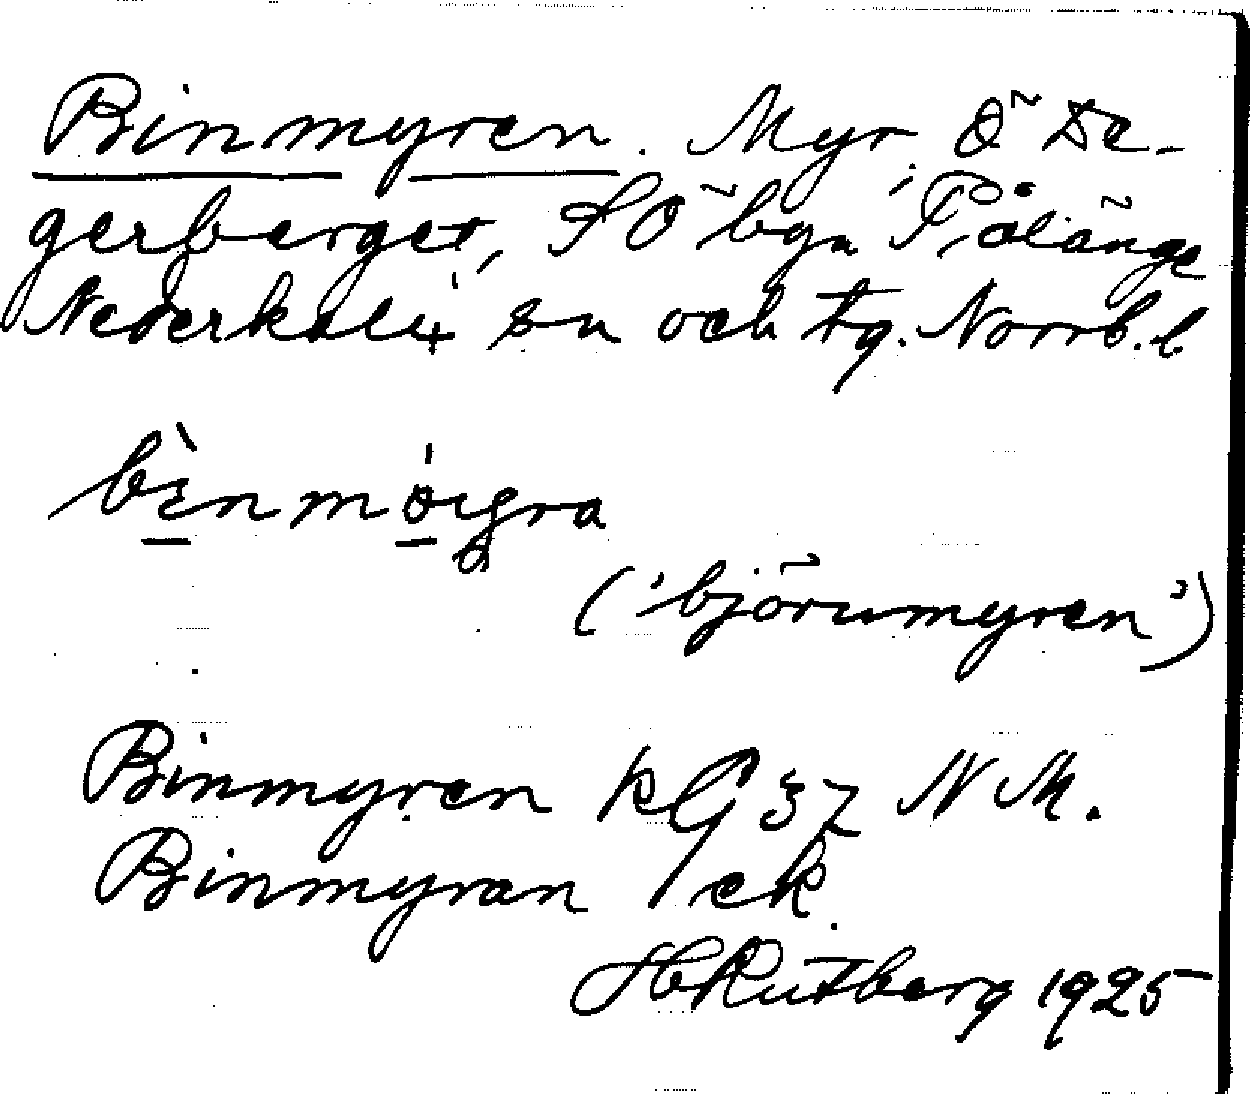 Binmyren. Myr, Ö De-
gerberget, SÖ byn Pålänge
Nederkalix sn och tg. Norrb. l
bènmöigra
('björnmyren')
Binmyren kG 37 NM.
Binmyran ek.
H Rutberg 1925